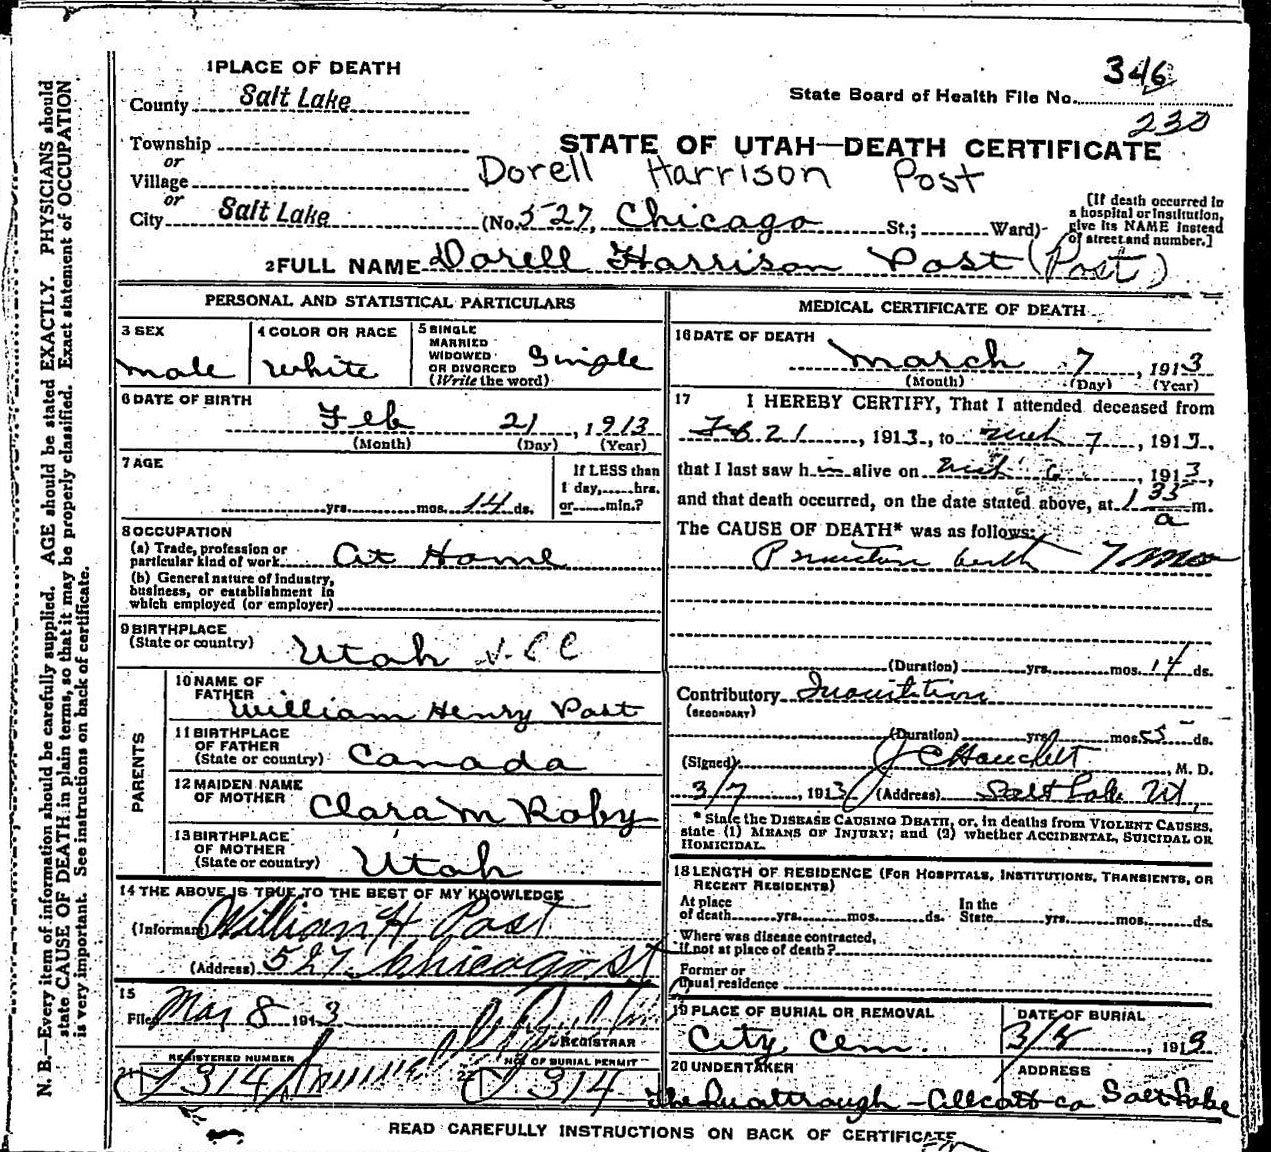 346
State Board of Health File No.
230
1 PLACE OF DEATH
County Salt Lake
Township
or
Village
or
City Salt Lake
STATE OF UTAH—DEATH CERTIFICATE
Dorell Harrison Post
(No. 527, Chicago St.; Ward)
[If death occurred in a hospital or institution, give its NAME instead of street and number.]
2 FULL NAME Dorell Harrison Post (Post)
PERSONAL AND STATISTICAL PARTICULARS
3 SEX
male
4 COLOR OR RACE
White
5 SINGLE
MARRIED
WIDOWED
OR DIVORCED
(Write the word)
Single
6 DATE OF BIRTH
Feb 21, 1913
(Month) (Day) (Year)
7 AGE
yrs. mos. 14 ds.
If LESS than
1 day, hrs.
or min.?
8 OCCUPATION
(a) Trade, profession or
particular kind of work At Home
(b) General nature of industry,
business, or establishment in
which employed (or employer)
9 BIRTHPLACE
(State or country)
Utah
PARENTS
10 NAME OF
FATHER
William Henry Post
11 BIRTHPLACE
OF FATHER
(State or country) Canada
12 MAIDEN NAME
OF MOTHER Clara M Roby
13 BIRTHPLACE
OF MOTHER
(State or country) Utah
14 THE ABOVE IS TRUE TO THE BEST OF MY KNOWLEDGE
(Informant) William H Post
(Address) 527 Chicago St
15
Filed Mar 8 1913
REGISTRAR
REGISTERED NUMBER
21 J 314
NO. OF BURIAL PERMIT
22 J 314
MEDICAL CERTIFICATE OF DEATH
16 DATE OF DEATH
March 7, 1913
(Month) (Day) (Year)
17 I HEREBY CERTIFY, That I attended deceased from
Feb 21, 1913, to Mch 7, 1913,
that I last saw h alive on Mch 6, 1913,
and that death occurred, on the date stated above, at 1 35 a m.
The CAUSE OF DEATH* was as follows:
birth 7 mos
(Duration) yrs. mos. 14 ds.
Contributory Inanition
(SECONDARY)
(Duration) yrs. mos. 5 ds.
(Signed) , M. D.
3/7, 1913 (Address) Salt Lake Ut,
* State the DISEASE CAUSING DEATH, or, in deaths from VIOLENT CAUSES,
state (1) MEANS OF INJURY; and (2) whether ACCIDENTAL, SUICIDAL OR
HOMICIDAL.
18 LENGTH OF RESIDENCE (FOR HOSPITALS, INSTITUTIONS, TRANSIENTS, OR
RECENT RESIDENTS)
At place
of death yrs. mos. ds.
In the
State yrs. mos. ds.
Where was disease contracted,
if not at place of death?
Former or
usual residence
19 PLACE OF BURIAL OR REMOVAL
City Cem.
DATE OF BURIAL
3/8, 1913
20 UNDERTAKER
ADDRESS
Salt Lake
READ CAREFULLY INSTRUCTIONS ON BACK OF CERTIFICATE
N. B.—Every item of information should be carefully supplied. AGE should be stated EXACTLY. PHYSICIANS should
state CAUSE OF DEATH in plain terms, so that it may be properly classified. Exact statement of OCCUPATION
is very important. See instructions on back of certificate.